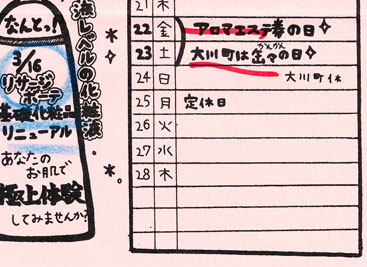 なんとっ!
3/16
リサージ
ボーテ
基礎化粧品
リニューアル
あなたの
お肌で
極上体験
してみませんか?
液レベルの化粧液.
21 木
22 金 アロマエステ券の日
23 土 大川町は金々の日
24 日 大川町休
25 月 定休日
26 火
27 水
28 木